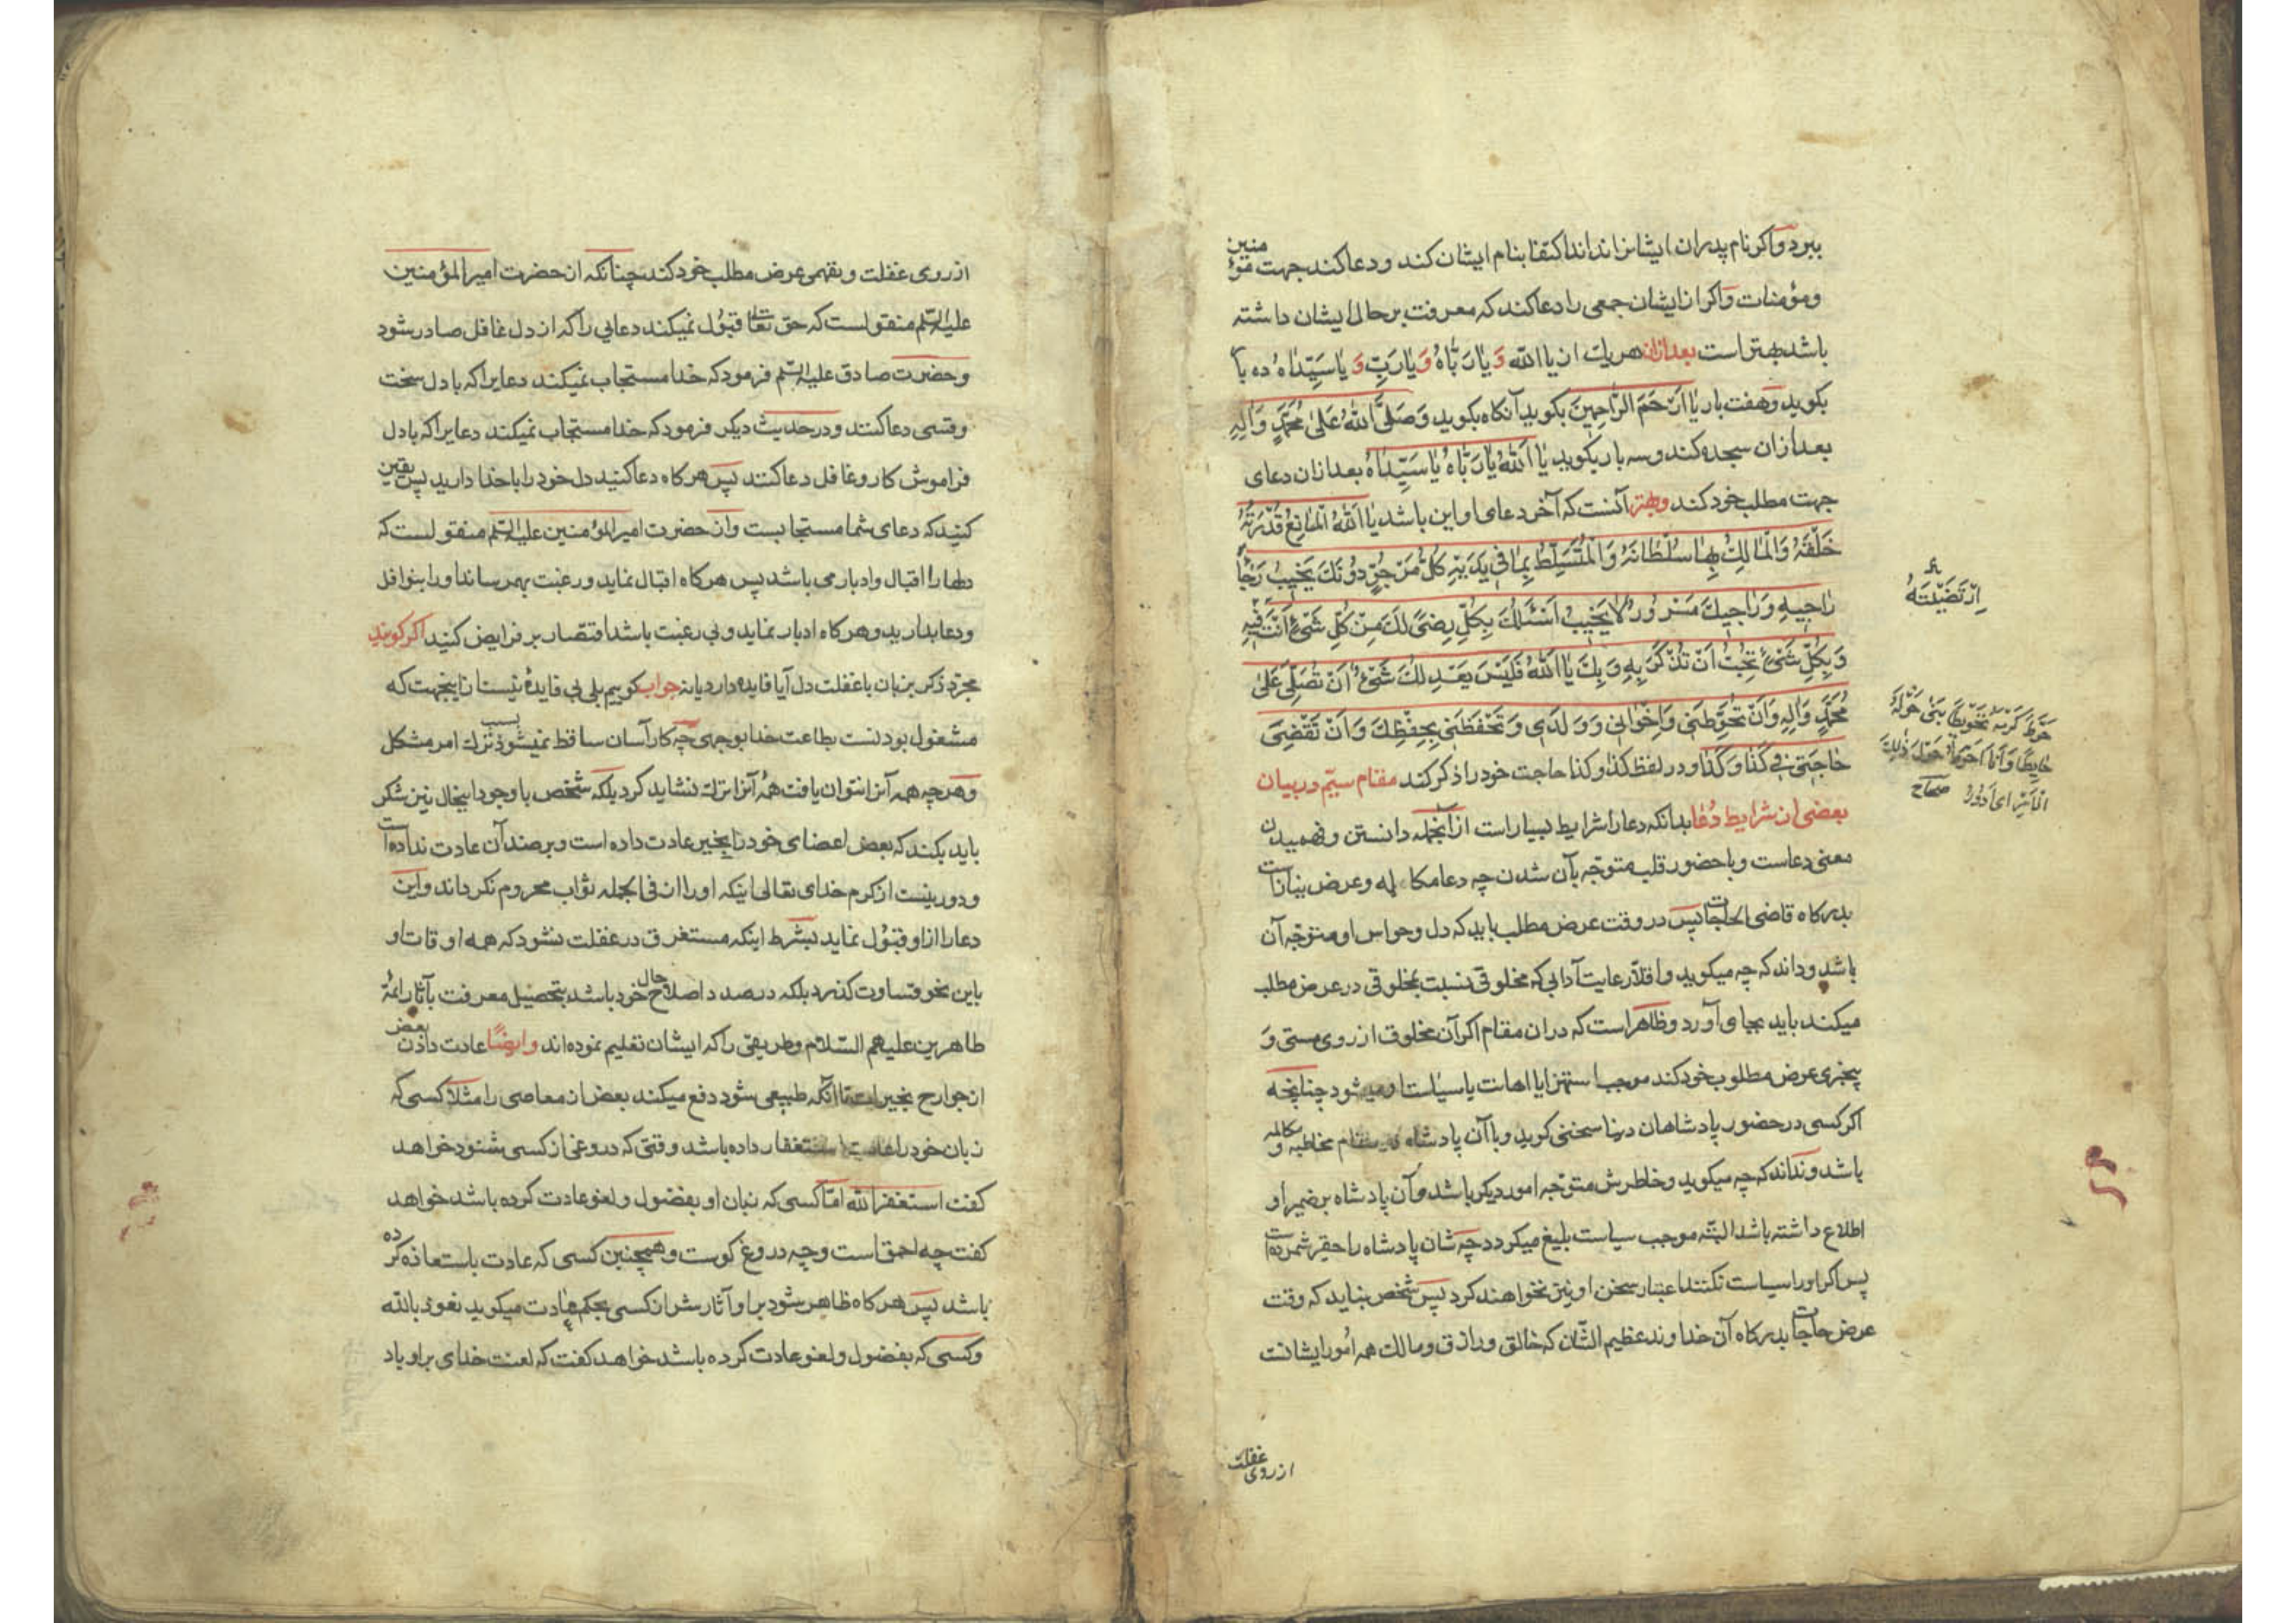 ببرد واکر نام پدران ایشانرا نداند اکتفا بنام ایشان کند و دعا کند جهت مؤمنین
ومؤمنات واکر از ایشان جمعی را دعا کند که معرفت بر حال ایشان داشته
باشد بهتر است بعد ازان هر یك از یا اللّه وَ یا رَبّاهُ وَ یا رَبِّ وَ یا سَیِّداهُ ده با
بکوید وهفت بار یا اَرْحَمَ الرّاحِمِینَ بکوید آنکاه بکوید وَصَلَّی اللّهُ عَلیٰ مُحَمَّدٍ وَآلِهِ
بعد ازان سجده کند وسه بار بکوید یا اَللّهُ یا رَبّاهُ یا سَیِّداهُ بعد ازان دعای
جهت مطلب خود کند وبهتر آنست که آخر دعای او این باشد یا اَللّهُ الْمانِعُ قُدْرَتُهُ
خَلْقَهُ وَالْمالِكُ بِها سُلْطانَهُ وَالْمُتَسَلِّطُ بِما فِی یَدَیْهِ كُلُّ مَرْجُوٍّ دُونَكَ یَخِیبُ رَجاءُ
راجِیهِ وَراجِیكَ مَسْرُورٌ لا یَخِیبُ اَسْئَلُكَ بِكُلِّ رِضیً لَكَ مِنْ كُلِّ شَیْءٍ اَنْتَ فِیهِ
وَبِكُلِّ شَیْءٍ تُحِبُّ اَنْ تُذْكَرَ بِهِ وَبِكَ یا اَللّهُ فَلَیْسَ یَعْدِلُكَ شَیْءٌ اَنْ تُصَلِّیَ عَلیٰ
مُحَمَّدٍ وَآلِهِ وَاَنْ تُحَوِّطَنِی وَاِخْوانِی وَوَلَدِی وَتَحْفَظَنِی بِحِفْظِكَ وَاَنْ تَقْضِیَ
حاجَتِی فِی كَذا وَكَذا ودر لفظ کذا وکذا حاجت خود را ذکر کند مقام سیّم در بیان
بعضی از شرایط دُعا بدانکه دعا را شرایط بسیار است از آنجمله دانستن وفهمیدن
معنی دعاست وبا حضور قلب متوجّه بآن شدن چه دعا مکالمه وعرض نیازات
بدرکاه قاضی الحاجات پس در وقت عرض مطلب باید که دل وحواس او متوجّه آن
باشد وداند که چه میکوید واقلاّ رعایت آدابی که مخلوقی نسبت بمخلوقی در عرض مطلب
میکند باید بجای آورد وظاهر است که در ان مقام اکر آن مخلوق از روی مستی و
بیخبری عرض مطلوب خود کند موجب استهزا یا اهانت یا سیاست او میشود چنانچه
اکر کسی در حضور پادشاهان دنیا سخنی کوید وبا آن پادشاه در مقام مخاطبه ومکالمه
باشد ونداند که چه میکوید وخاطرش متوجّه امور دیکر باشد وآن پادشاه بر ضمیر او
اطلاع داشته باشد البتّه موجب سیاست بلیغ میکردد چه شان پادشاه را حقیر شمرده است
پس اکر او را سیاست نکنند اعتبار سخن او نیز نخواهند کرد پس شخص بناید که وقت
عرض حاجات بدرکاه آن خداوند عظیم الشّان که خالق ورازق ومالك همه امُور ایشانست
اِرْتَضَیْتَهُ
حَوَّطَ كَرْمَهُ تَحْوِیطاً بَنیٰ حَوْلَهُ
حایِطاً وَاَنَا اُحَوِّطُ حَوْلَ ذٰلِكَ
الْاَمْرِ ای اَدُورُ صحاح
از روی غفلت
از روی غفلت وبفهمی عرض مطلب خود کند چنانکه از حضرت امیر المؤمنین
علیه السّلم منقولست که حق تعالی قبُول نمیکند دعایی را که از دل غافل صادر شود
وحضرت صادق علیه السّلم فرمود که خدا مستجاب نمیکند دعایرا که با دل سخت
وقسی دعا کنند ودر حدیث دیکر فرمود که خدا مستجاب نمیکند دعایرا که با دل
فراموش کار وغافل دعا کنند پس هر کاه دعا کنید دل خود را با خدا دارید پس یقین
کنید که دعای شما مستجابست واز حضرت امیر المؤمنین علیه السّلم منقولست که
دلها را اقبال وادبار می باشد پس هر کاه اقبال نماید ورغبت بهم رساند او را بنوافل
ودعا بدارید وهر کاه ادبار نماید وبی رغبت باشد اقتصار بر فرایض کنید اکر کویند
مجرّد ذکر بزبان با غفلت دل آیا فایده دارد یا نه جواب کوییم بلی بی فایدهٔ نیست از اینجهت که
مشغول بودنست بطاعت خدا بوجهی چه کار آسان ساقط نمیشود بسبب ترك امر مشکل
وهر چه همه آنرا نتوان یافت همهٔ آنرا ترك نشاید کرد بلکه شخص باوجود اینحال نیز شکر
باید بکند که بعض اعضای خود را بخیر عادت داده است وبر صد آن عادت نداده است
ودور نیست از کرم خدای تعالی اینکه او را از فی الجمله ثواب محروم نکرداند واین
دعا را از او قبُول نماید بشرط اینکه مستغرق در غفلت نشود که همه اوقات او
باین نحو قساوت کذرد بلکه در صدد اصلاح حال خود باشد بتحصیل معرفت بآثار ائمّهٔ
طاهرین علیهم السّلام وطریقی را که ایشان تعلیم نموده اند وایضاً عادت دادن بعض
از جوارح بخیرات تا آنکه طبیعی شود دفع میکند بعض از معاصی را مثلاً کسی که
زبان خود را عادت استغفار داده باشد وقتی که دروغی از کسی شنود خواهد
کفت استغفر اللّه امّا کسی که زبان او بفضول ولغو عادت کرده باشد خواهد
کفت چه احمق است وچه دروغ کوست وهمچنین کسی که عادت باستعاذه کرده
باشد پس هر کاه ظاهر شود بر او آثار شر از کسی بحکم عادت میکوید نعوذ باللّه
وکسی که بفضول ولغو عادت کرده باشد خواهد کفت که لعنت خدای بر او باد